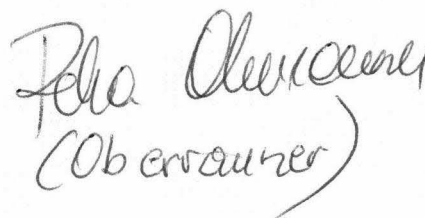 Petra Oberrauner
(Oberrauner)